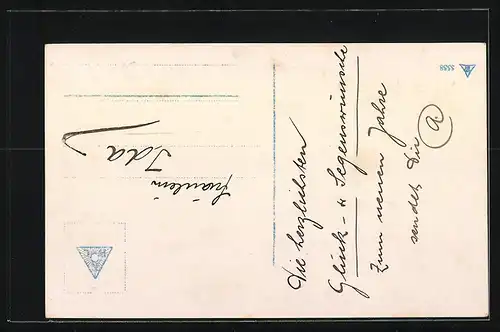 Die herzlichsten
Glück- u. Segenswünsche
zum neuen Jahre
sendet Dir
A
Fräulein
Ida
5558